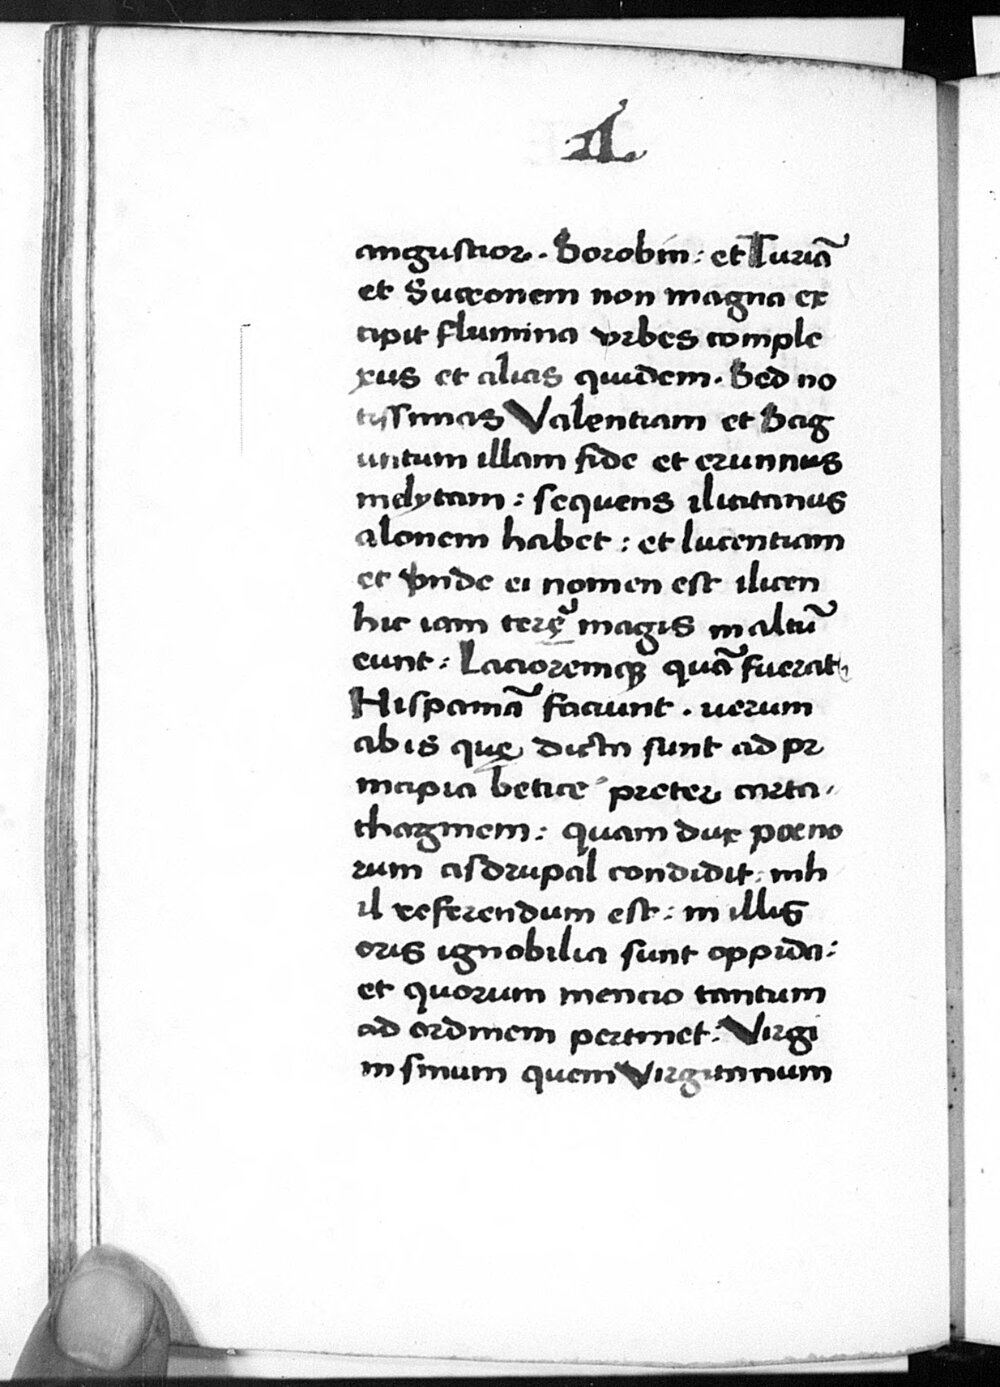 .II.
angustior. Sorobin: et Turiã
et Sucronem non magna ex
cipit flumina vrbes comple
xus et alias quidem. Sed no
tissimas Valentiam et Sag
untum illam fide et erumnis
inclytam: sequens ilicitanus
alonem habet: et lucentiam
et vnde ei nomen est ilicen
hic iam terrę magis in altũ
eunt: Lacioremq; quã fuerat
Hispaniã faciunt. uerum
ab is que dicta sunt ad pr
incipia betice preter carta
thaginem: quam dux poeno
rum asdrupal condidit: nih
il referendum est: in illis
oris ignobilia sunt oppida:
et quorum mencio tantum
ad ordinem pertinet: Virgi
in sinum quem Virgitanum